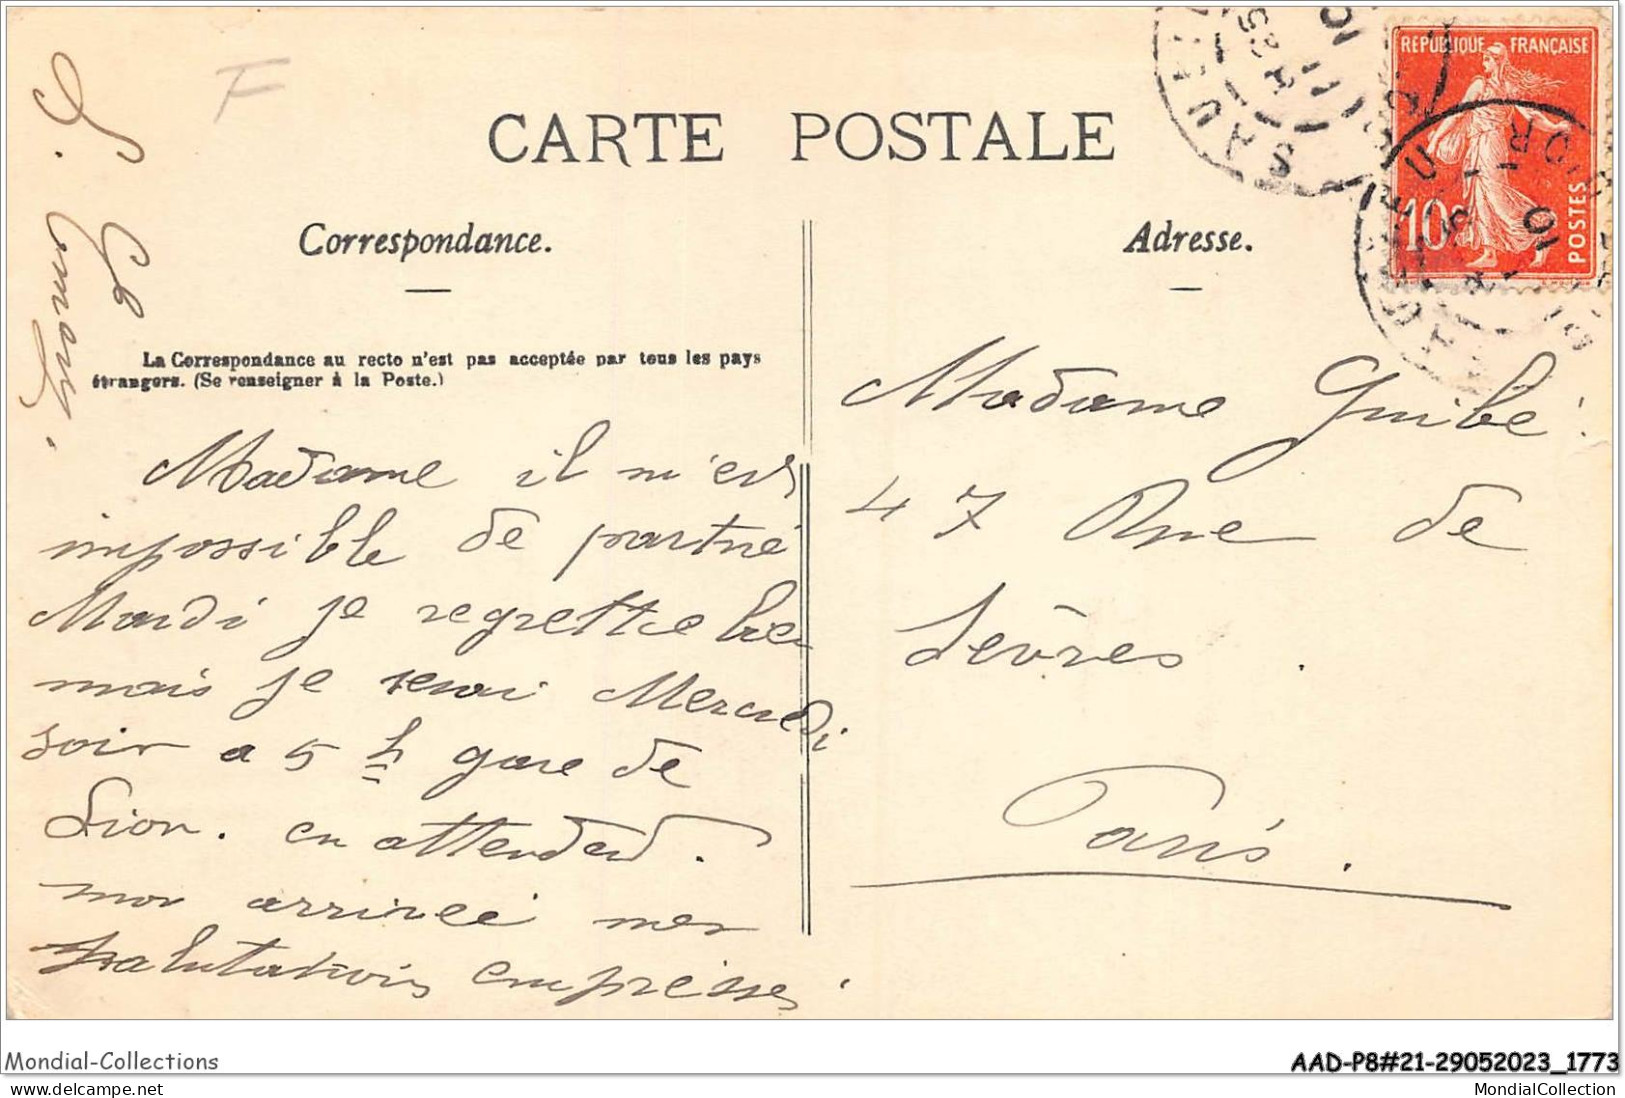 F
CARTE POSTALE
Correspondance.
Adresse.
La Correspondance au recto n'est pas acceptée par tous les pays
étrangers. (Se renseigner à la Poste.)
REPUBLIQUE FRANÇAISE
10c
POSTES
Madame il m'est
impossible de partire
Mardi je regrette bien
mais je serai Mercredi
soir a 5 h gare de
Lion. en attendend.
mon arrivée mes
salutations empressé
Madame Guibé.
47 Rue de
Sèvres.
Paris.
Mondial-Collections
AAD-P8#21-29052023_1773
delcampe.net
MondialCollection